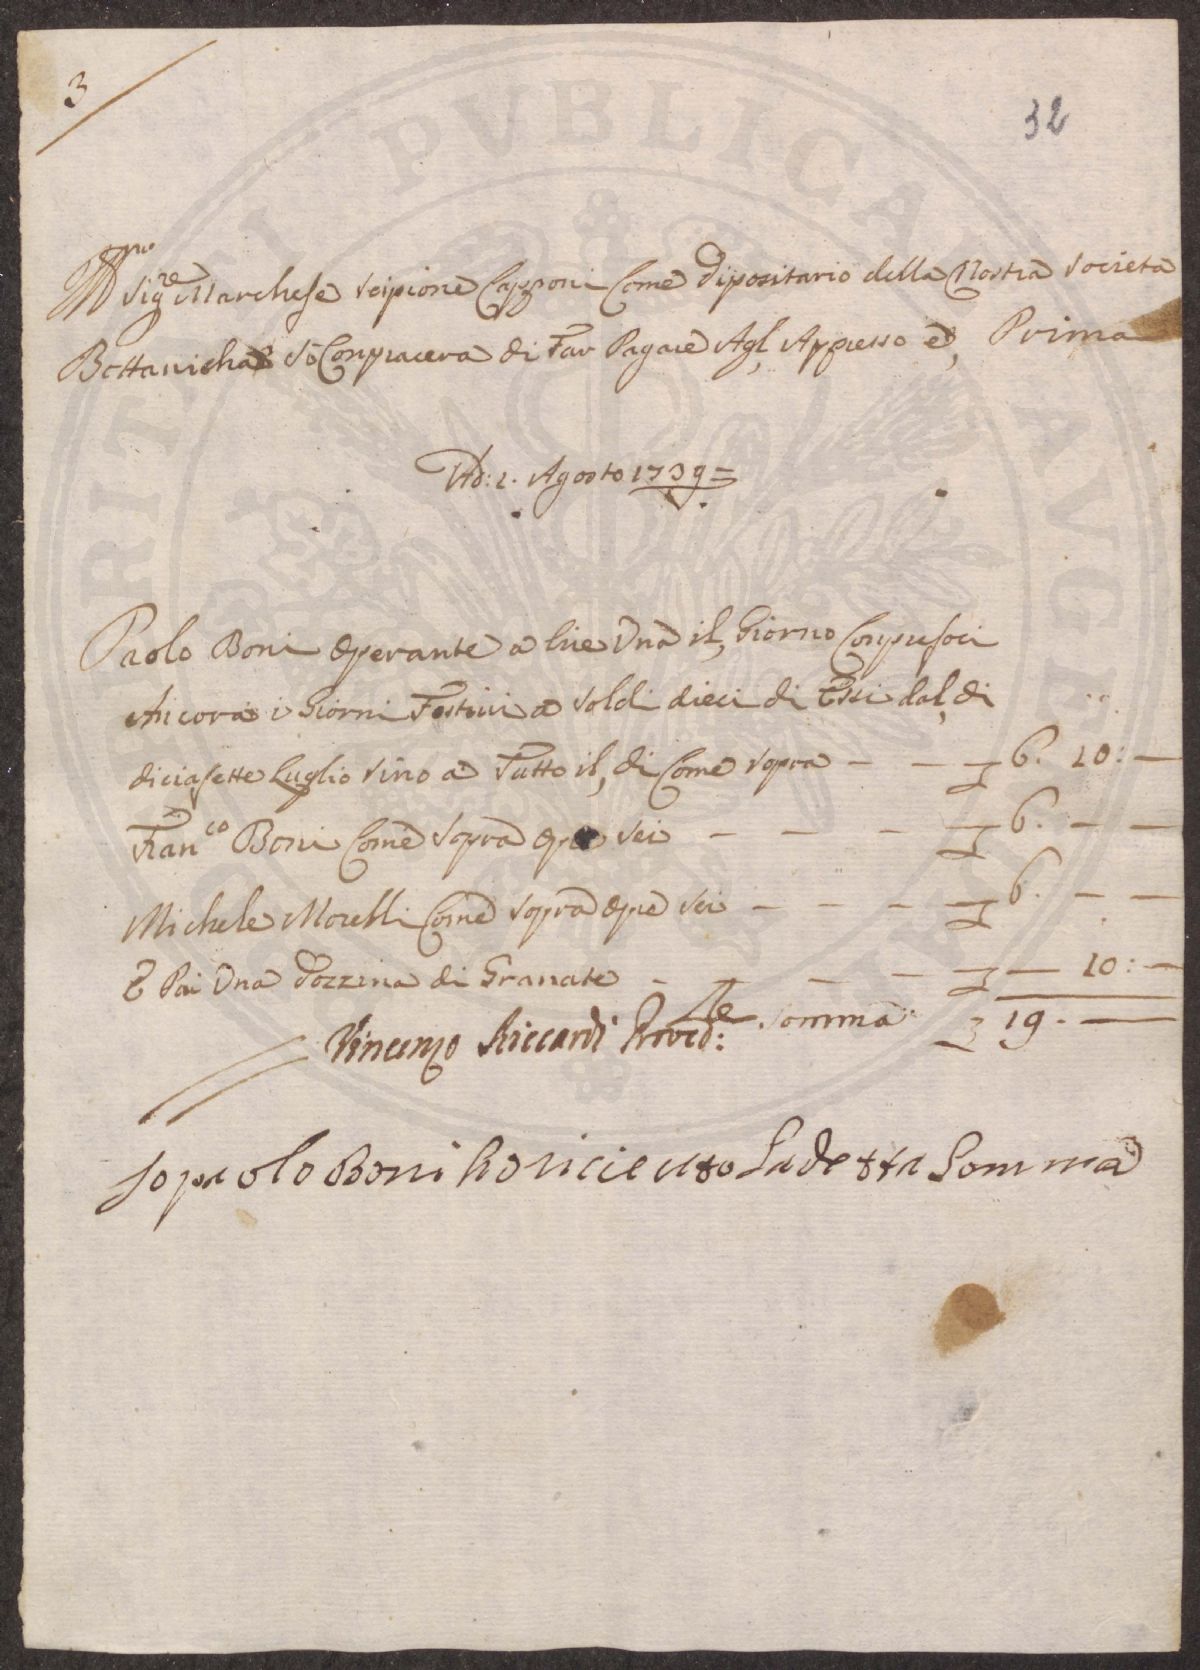 3
32
Ill.mo
Sig.re Marchese Scipione Capponi Come Dipositario della Nostra Società
Bottanicha Si Conpiacera di Far Pagare Agl, Appresso e, Prima
Ad: 1. Agosto 1739=
Paolo Boni Opperante a lire Una il, Giorno Conpresoci
Ancora i Giorni Festivi a Soldi dieci di Essi dal, di
diciasette Luglio Sino a Tutto il, di Come Sopra — — 6. 10: —
Fran.co Boni Come Sopra opre Sei — — — 6. — —
Michele Morelli Come Sopra opre Sei — — — 6. — —
E Per Una Dozzina di Granate — — — — 10: —
Somma 19. —
Vincenzo Riccardi Proved:re
Io paolo Boni ho riceuto La detta Somma